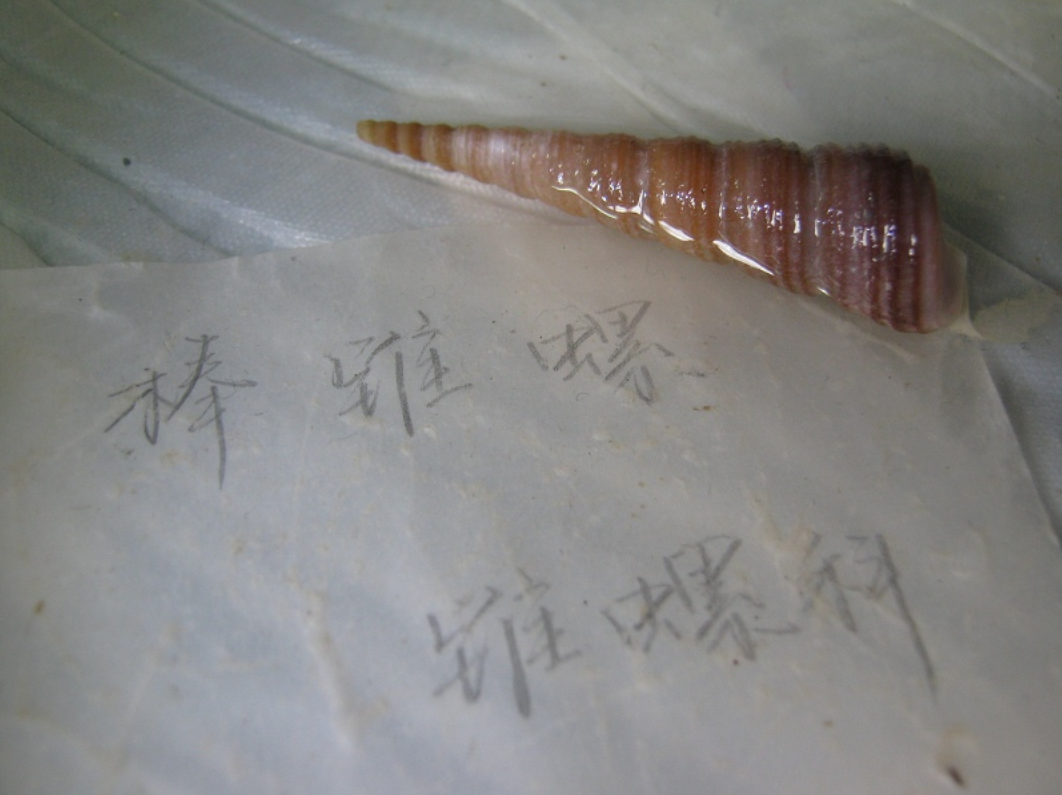 棒锥螺
锥螺科